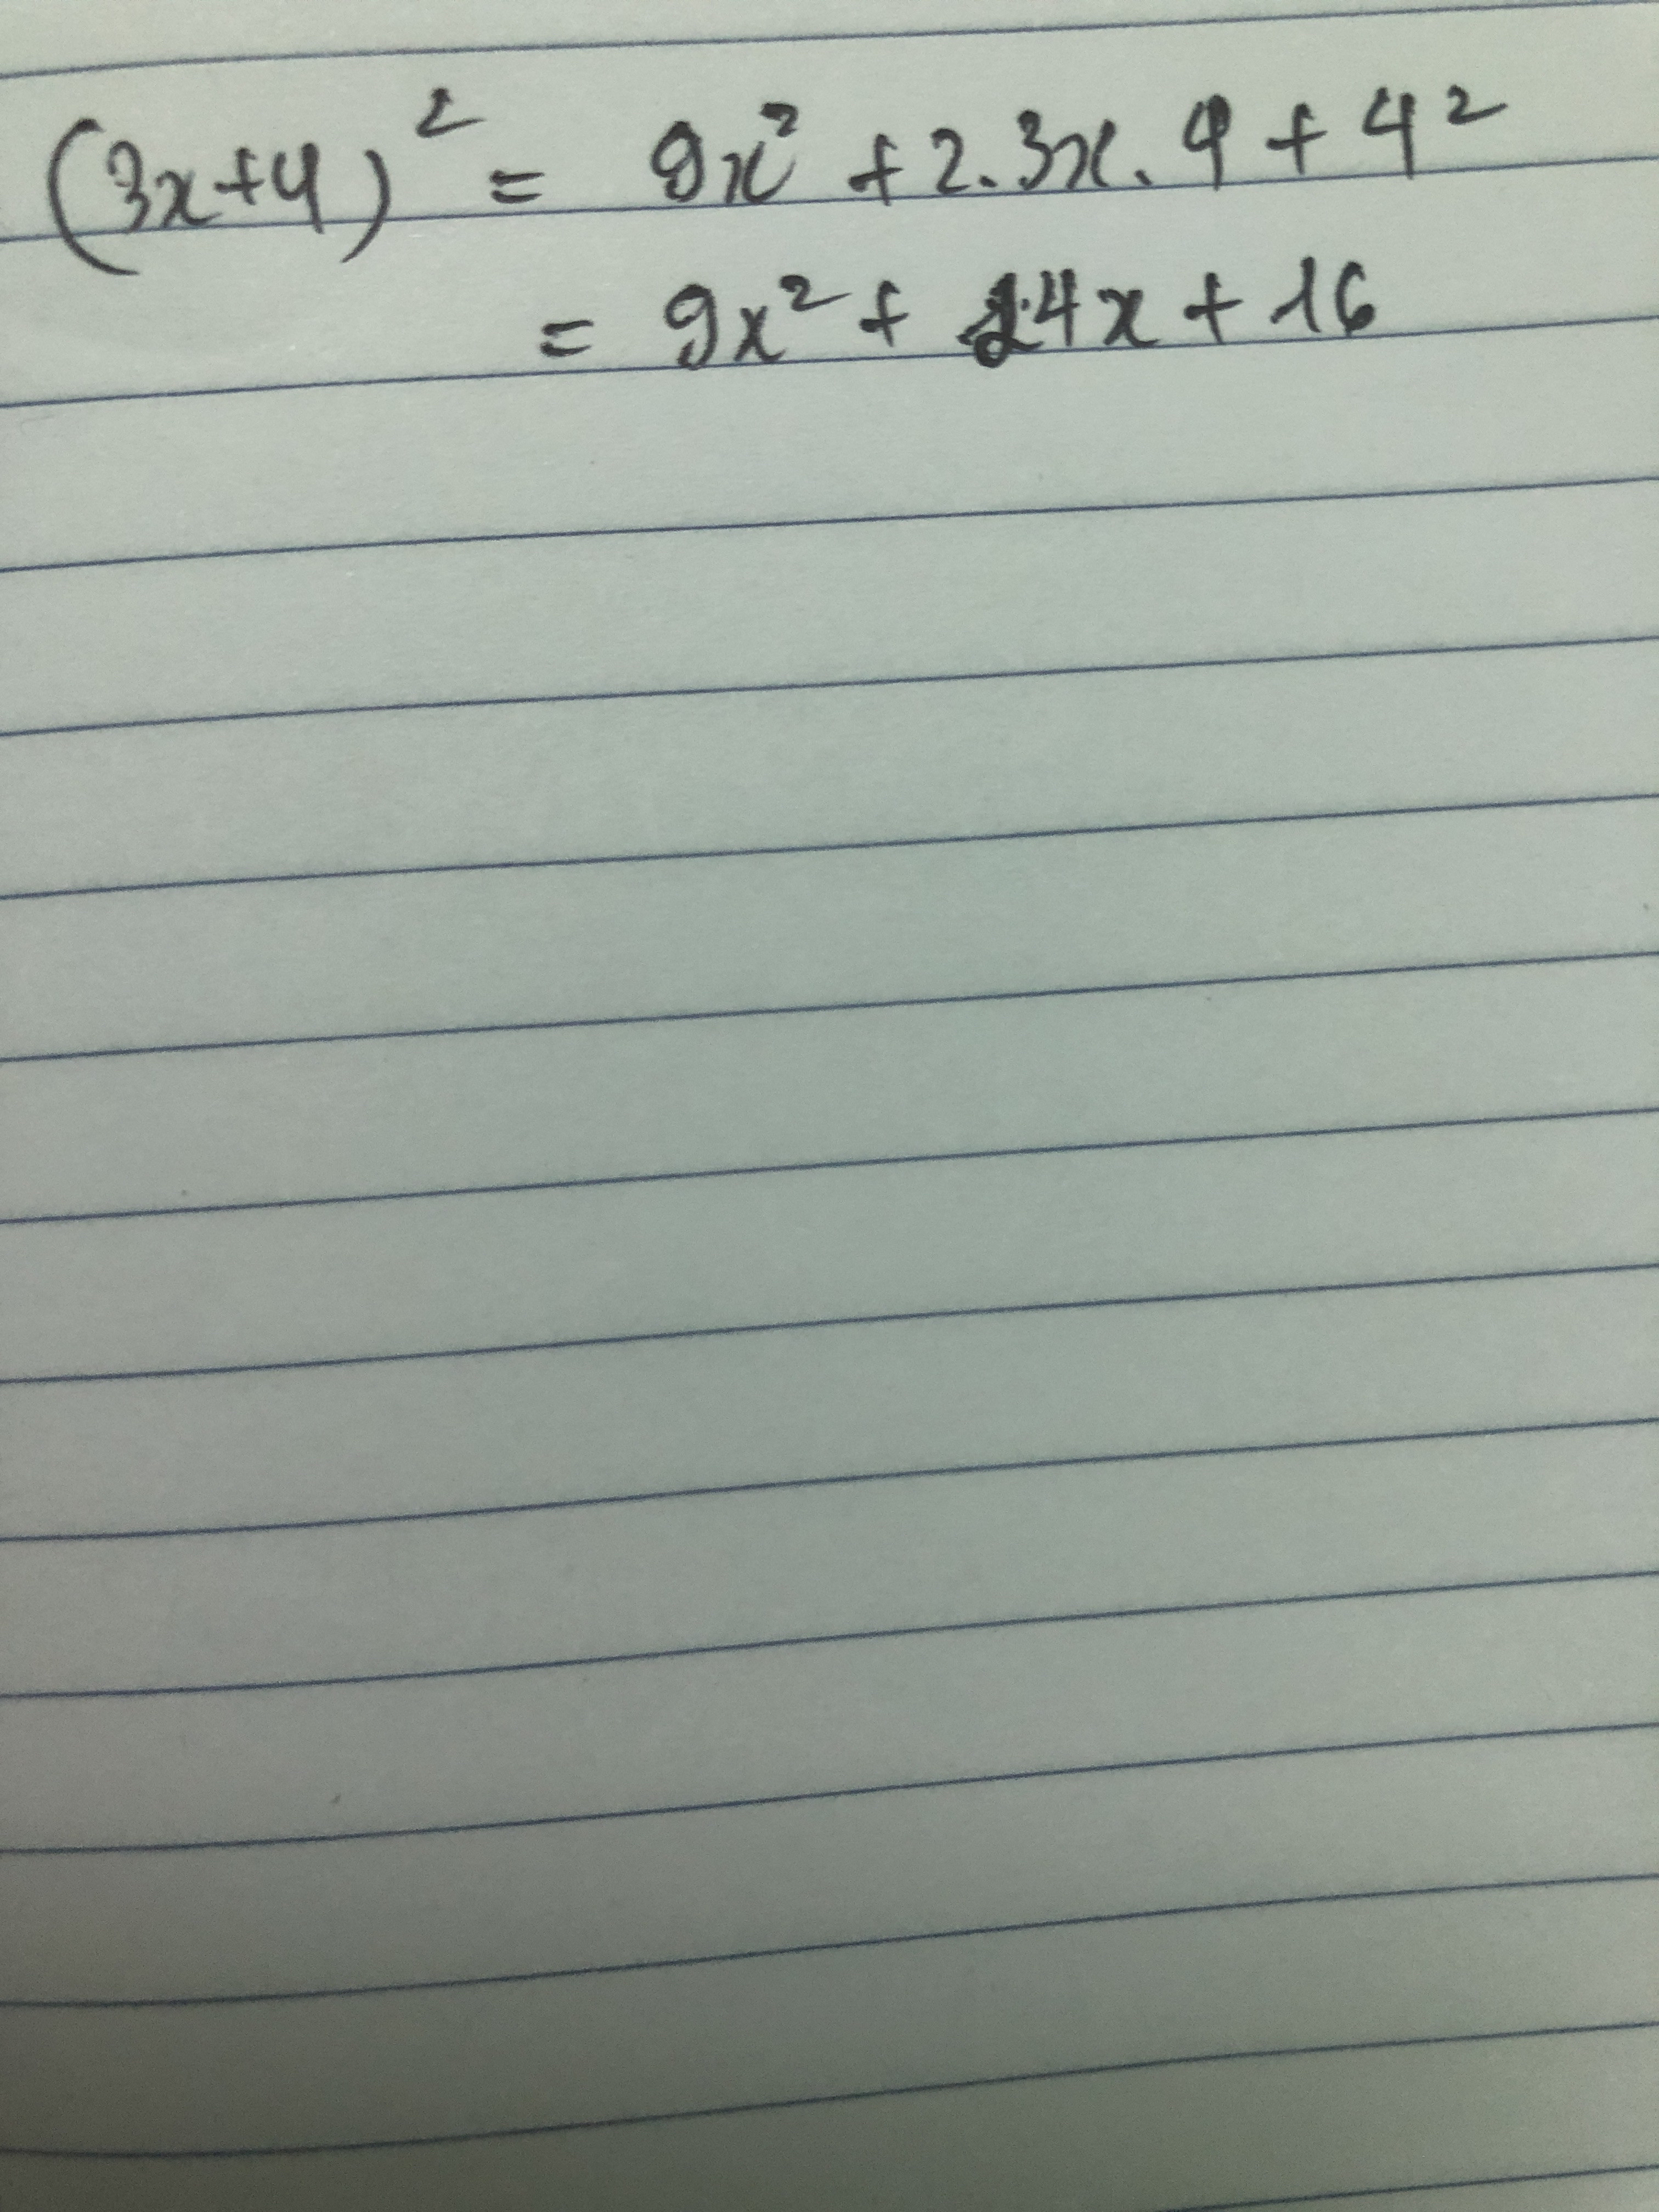 (3x+4)² = 9x² + 2.3x.4 + 4²
= 9x² + 24x + 16